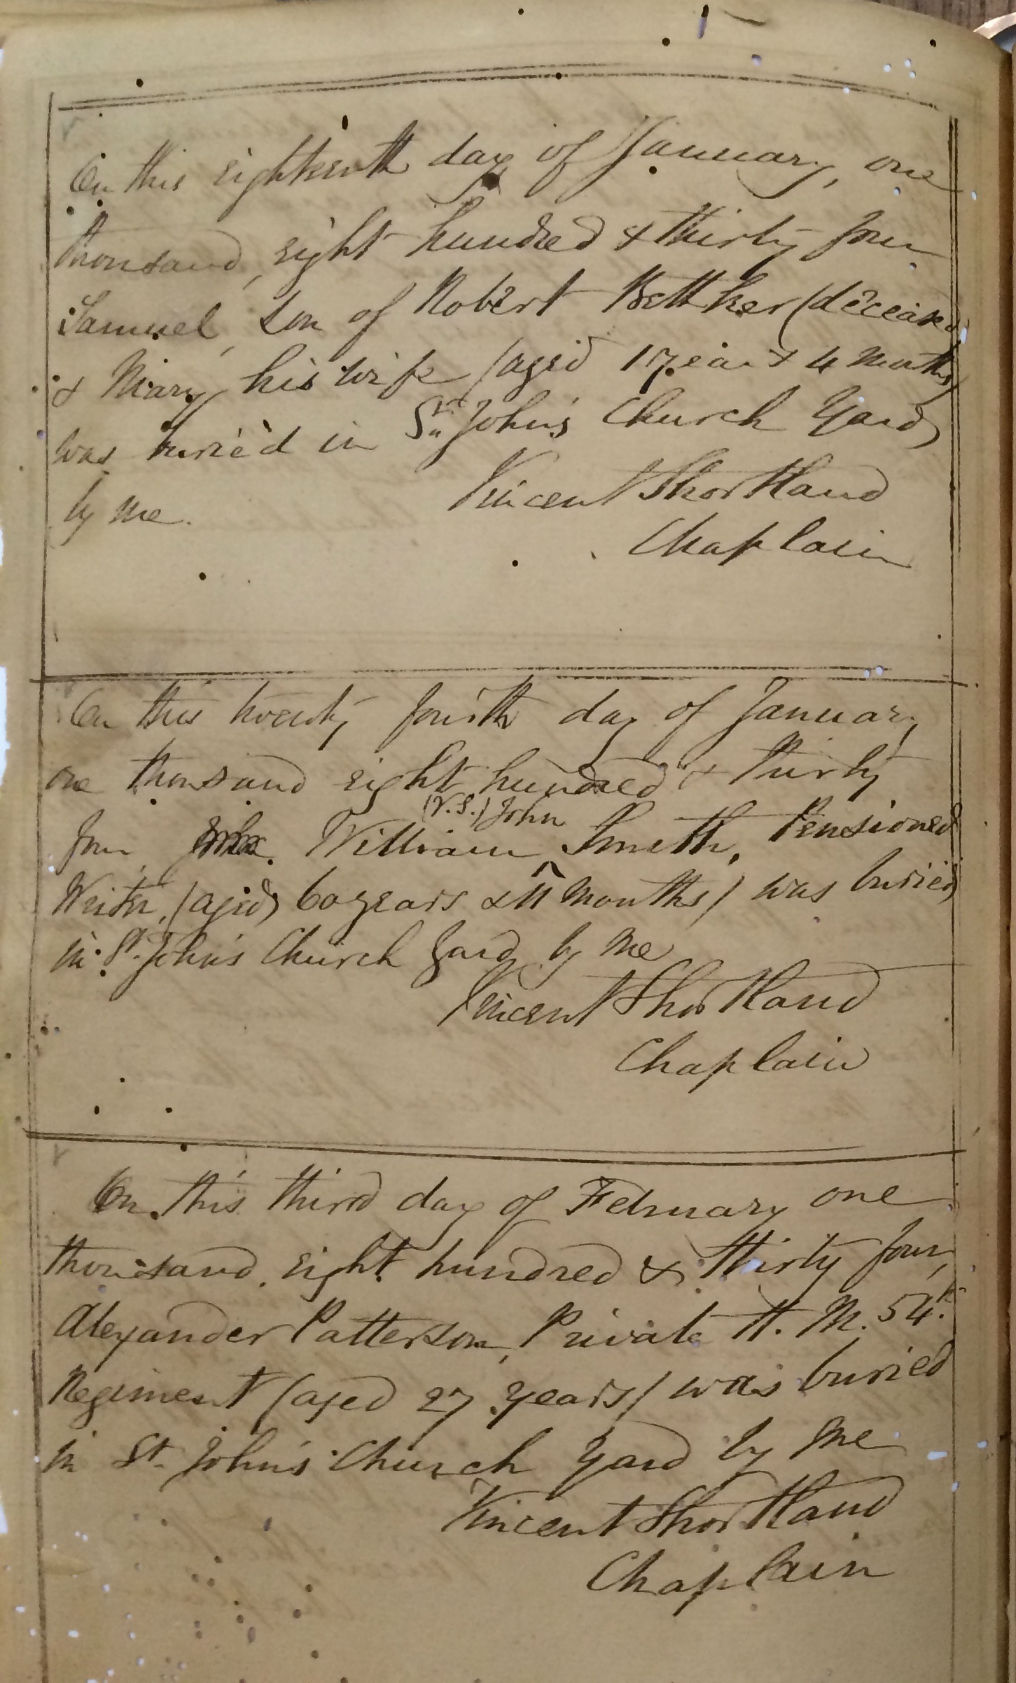 On this eighteenth day of January, one
thousand, eight hundred & thirty four
Samuel, Son of Robert (deceased
& Mary his wife (aged 1 year & 4 Months)
was buried in St. John's Church Yard
by me.
Vincent Shortland
Chaplain
On this twenty fourth day of January
one thousand eight hundred & thirty
(V.S.) John
four William ^ Smith, Pensioned
Writer, (aged 60 years & 11 Months) was buried
in St. John's Church Yard by me
Vincent Shortland
Chaplain
On this third day of February one
thousand eight hundred & thirty four,
Alexander Patterson, Private H. M. 54th
Regiment (aged 27 years) was buried
in St. John's Church Yard by me
Vincent Shortland
Chaplain